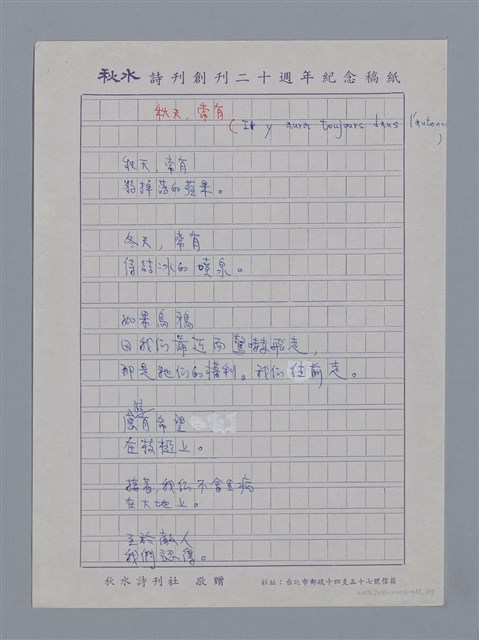 秋水 詩刊創刊二十週年紀念稿紙
秋天，常有
( Il y aura toujours dans l'automne
)
秋天，常有
掉落的蘋果。
冬天，常有
待結冰的噴泉。
如果烏鴉
因我们靠近而驚嚇飛走，
那是牠们的權利。我们往前走。
總有希望
在枝椏上。
接著，我们不會生病
在大地上。
至於敵人
我們認得。
秋水詩刊社 敬贈
社址：台北市郵政十四支五十七號信箱